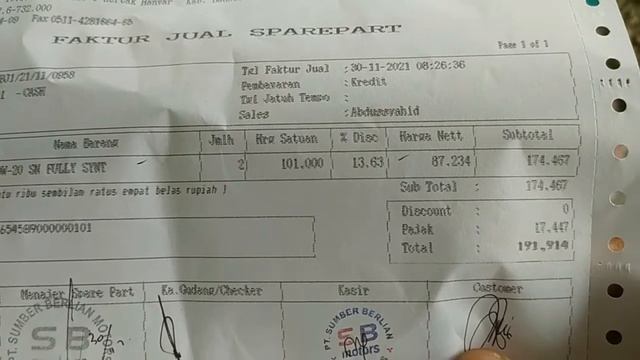 6-732.000
Fax 0511-4281664-65
FAKTUR JUAL SPAREPART
Page 1 of 1
BJ1/21/11/0958
- CASH
Tgl Faktur Jual : 30-11-2021 08:26:36
Pembayaran : Kredit
Tgl Jatuh Tempo :
Sales : Abdussyahid
Nama Barang Jmlh Hrg Satuan % Disc Harga Nett Subtotal
W-20 SN FULLY SYNT 2 101.000 13.63 87.234 174.467
ribu sembilan ratus empat belas rupiah )
Sub Total : 174.467
Discount : 0
Pajak : 17.447
Total : 191,914
654589000000101
Manajer Spare Part Ka.Gudang/Checker Kasir Customer
PT. SUMBER BERLIAN MOTORS
SB
PT. SUMBER BERLIAN
SB
motors